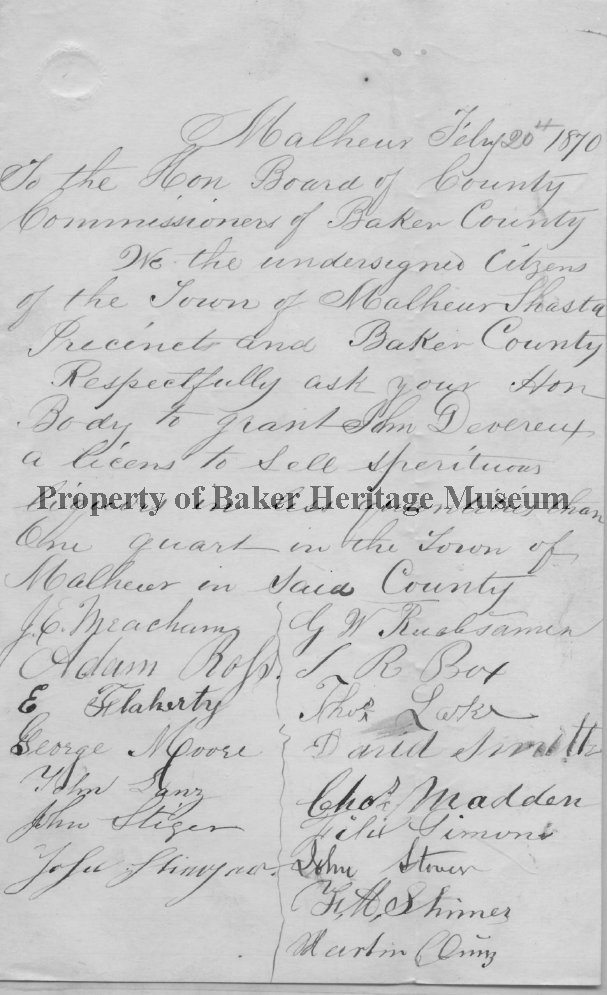 Malheur Feby 20th 1870
To the Hon Board of County
Commissioners of Baker County
We the undersigned Citzens
of the Town of Malheur Shasta
Precinct and Baker County
Respectfully ask your Hon
Body to grant John Devereux
a licens to Sell sperituous
liquors in less quantities than
Property of Baker Heritage Museum
One quart in the Town of
Malheur in Said County
J. E. Meacham
Adam Ross.
E Flaherty
George Moore
John Lanz
John Stiger
G W Ruebsamen
S R Box
Thos
David Smith
Chos Madden
Simons
John Stover
F. M. Shimer
Martin